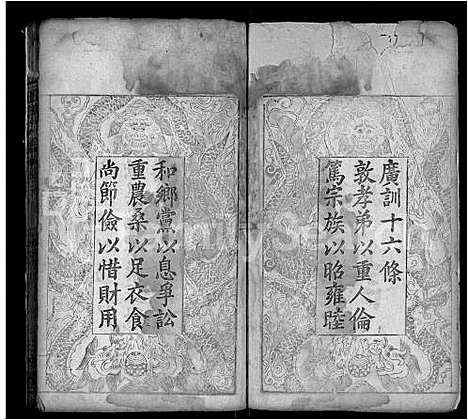 廣訓十六條
敦孝弟以重人倫
篤宗族以昭雍睦
和鄉黨以息爭訟
重農桑以足衣食
尚節儉以惜財用